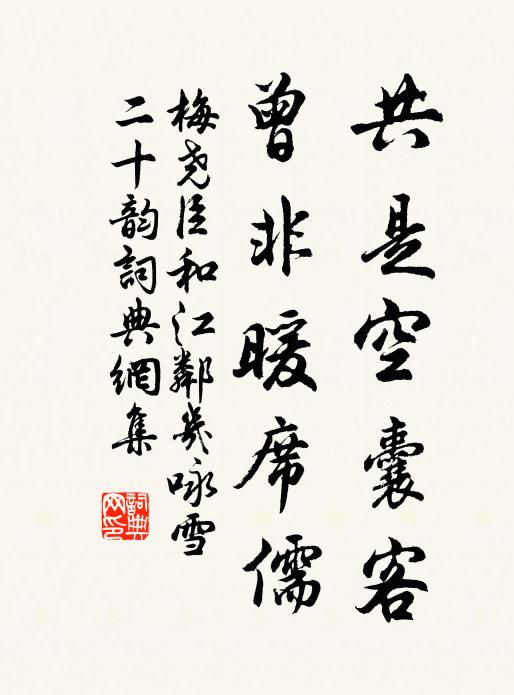 共是空囊客
曾非暖席儒
梅尧臣和江鄰幾咏雪
二十韵詞典網集
詞典
网印